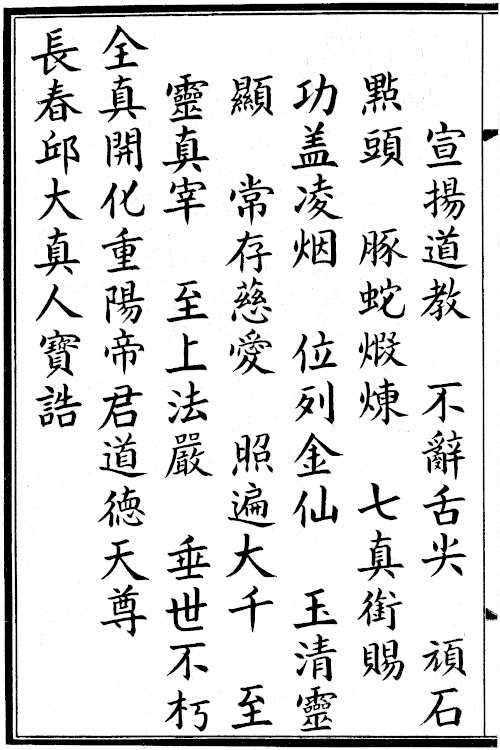 宣揚道教　不辭舌尖　頑石
點頭　豚蛇煅煉　七真銜賜
功盖凌烟　位列金仙　玉清靈
顯　常存慈愛　照遍大千　至
靈真宰　至上法嚴　垂世不朽
全真開化重陽帝君道德天尊
長春邱大真人寶誥